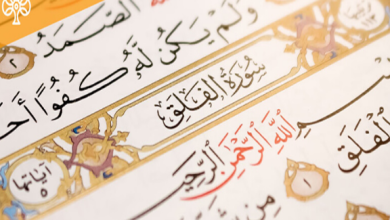 الصَّمَدُ ٢
وَلَمْ يَكُن لَّهُ كُفُوًا
سُورَةُ الْفَلَقِ
آيَاتُهَا ٥
اللَّهِ الرَّحْمَنِ الرَّحِيمِ
الْفَلَقِ ١
مِن